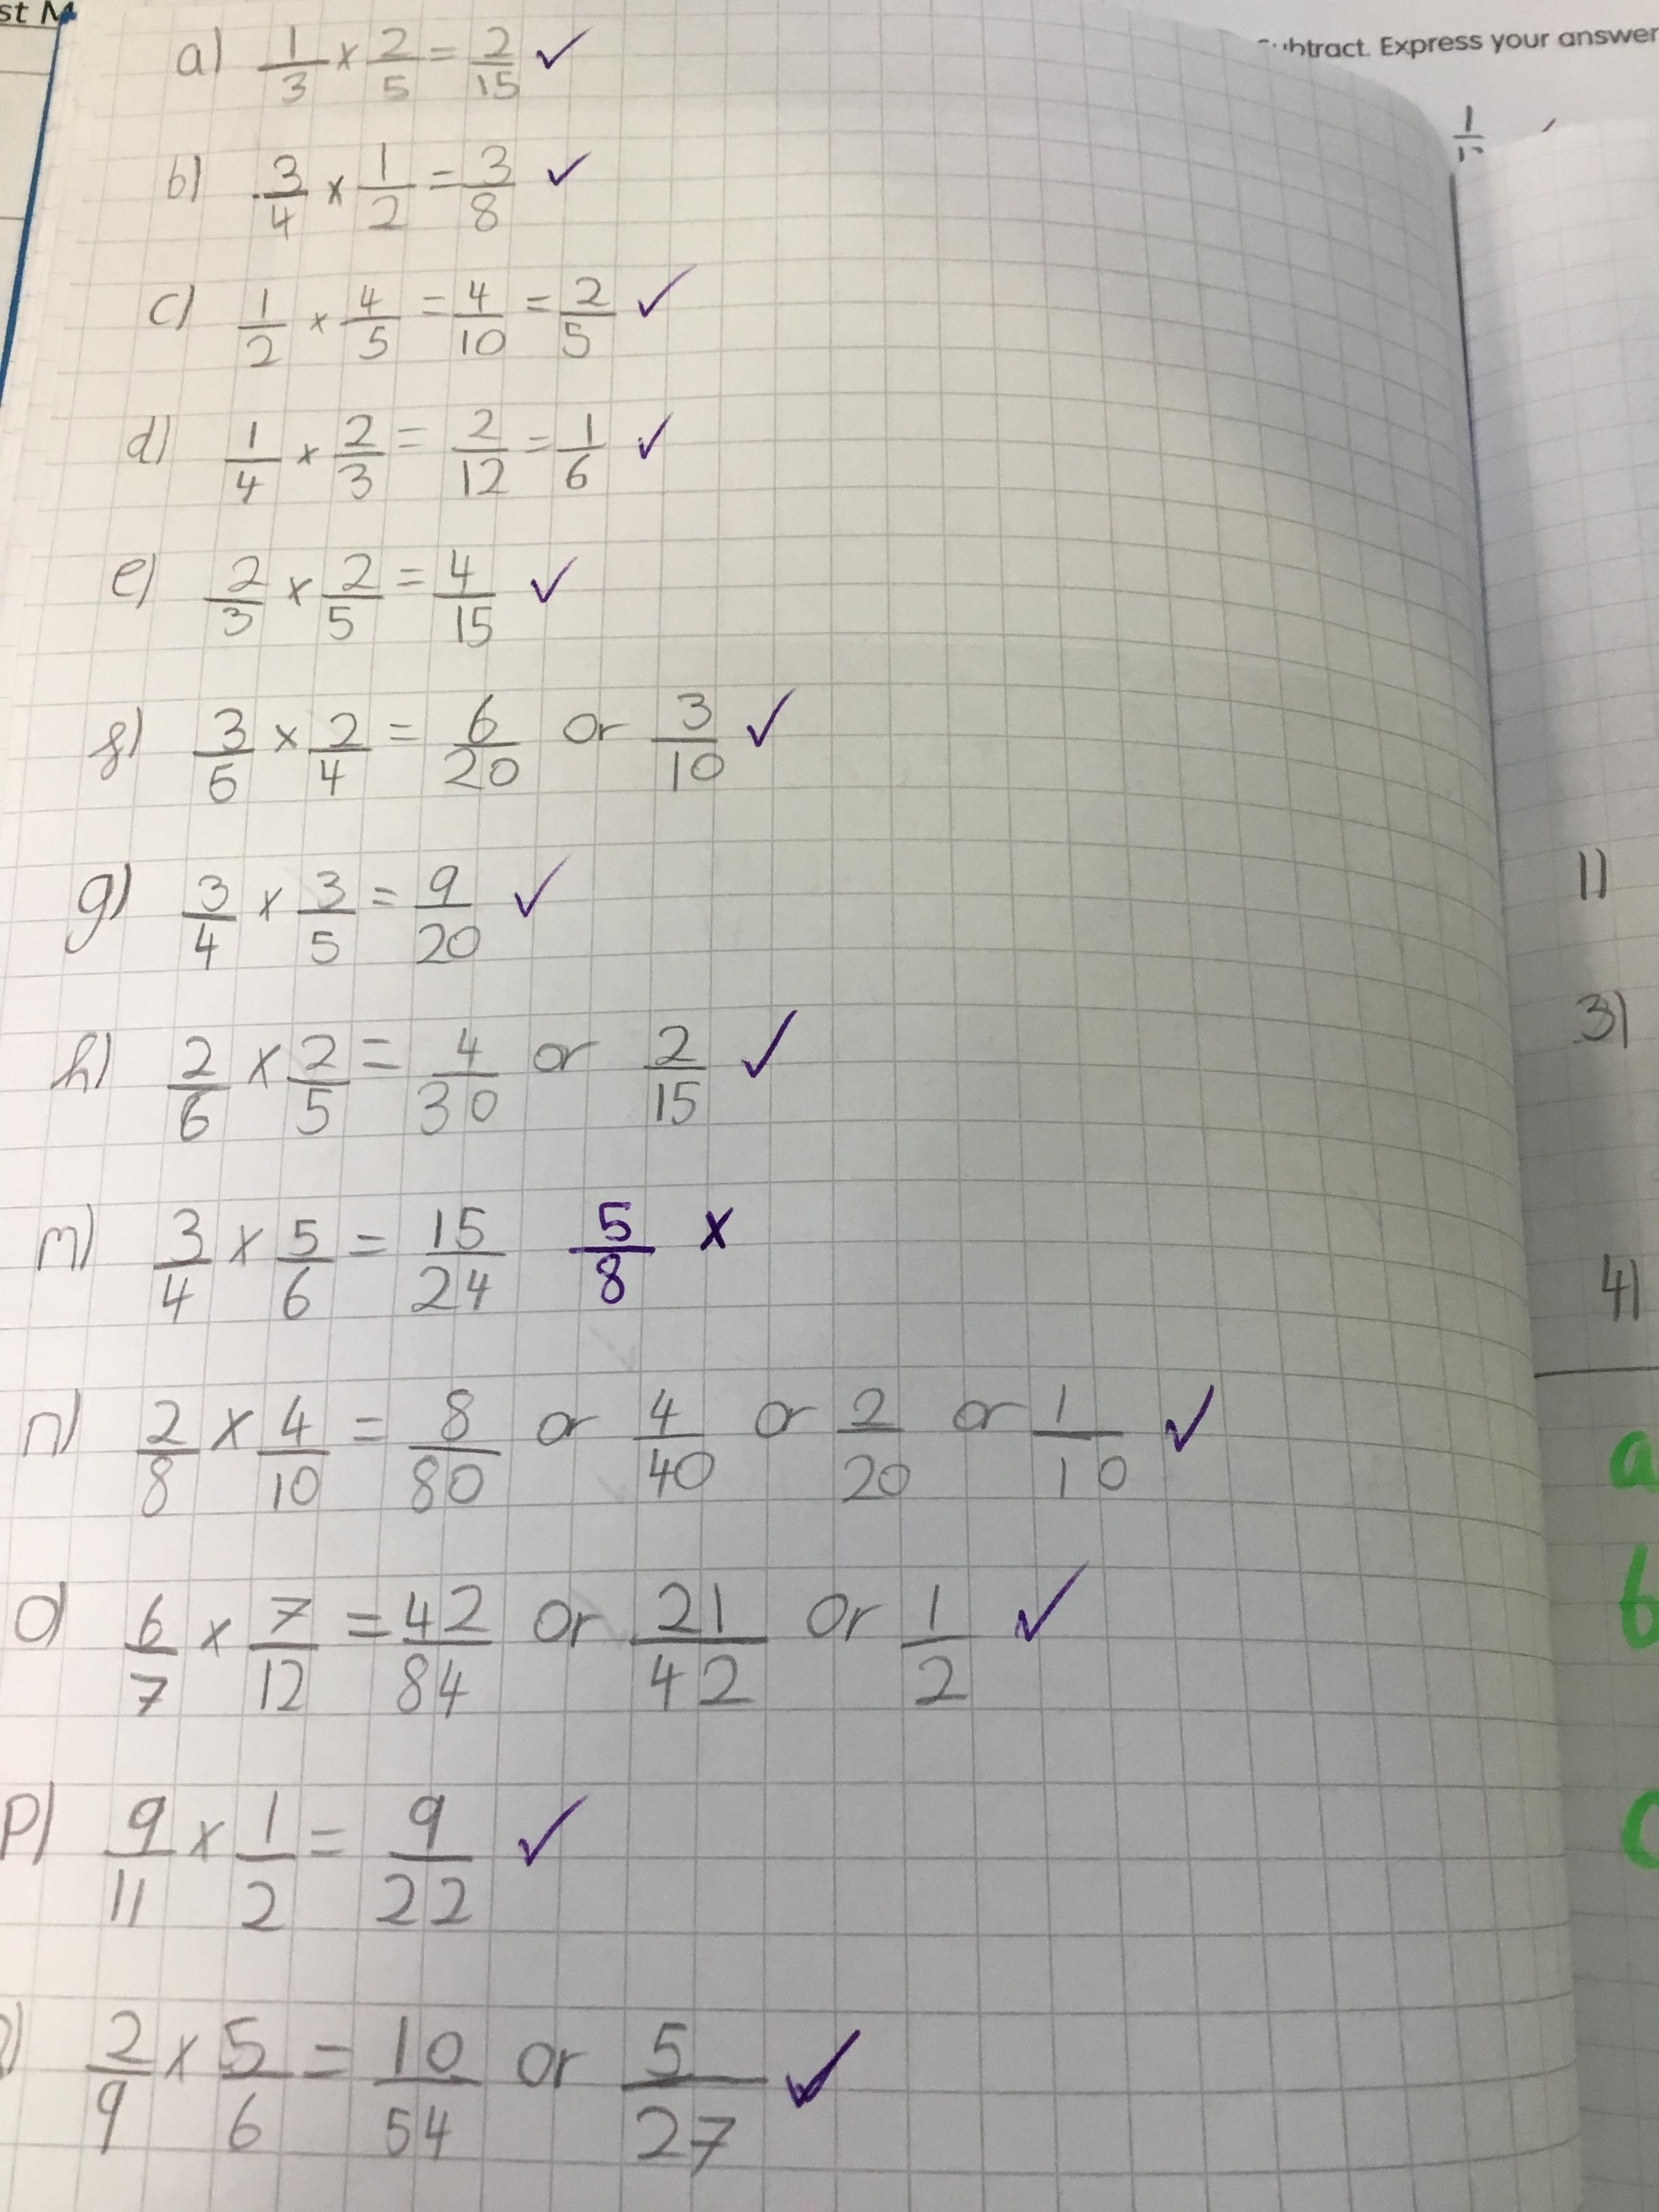 st M
a) 1/3 × 2/5 = 2/15 ✓
b) 3/4 × 1/2 = 3/8 ✓
c) 1/2 × 4/5 = 4/10 = 2/5 ✓
d) 1/4 × 2/3 = 2/12 = 1/6 ✓
e) 2/3 × 2/5 = 4/15 ✓
f) 3/5 × 2/4 = 6/20 or 3/10 ✓
g) 3/4 × 3/5 = 9/20 ✓
h) 2/6 × 2/5 = 4/30 or 2/15 ✓
m) 3/4 × 5/6 = 15/24 5/8 x
n) 2/8 × 4/10 = 8/80 or 4/40 or 2/20 or 1/10 ✓
o) 6/7 × 7/12 = 42/84 or 21/42 or 1/2 ✓
p) 9/11 × 1/2 = 9/22 ✓
) 2/9 × 5/6 = 10/54 or 5/27 ✓
ubtract. Express your answer
1)
3)
4)
a
b
c